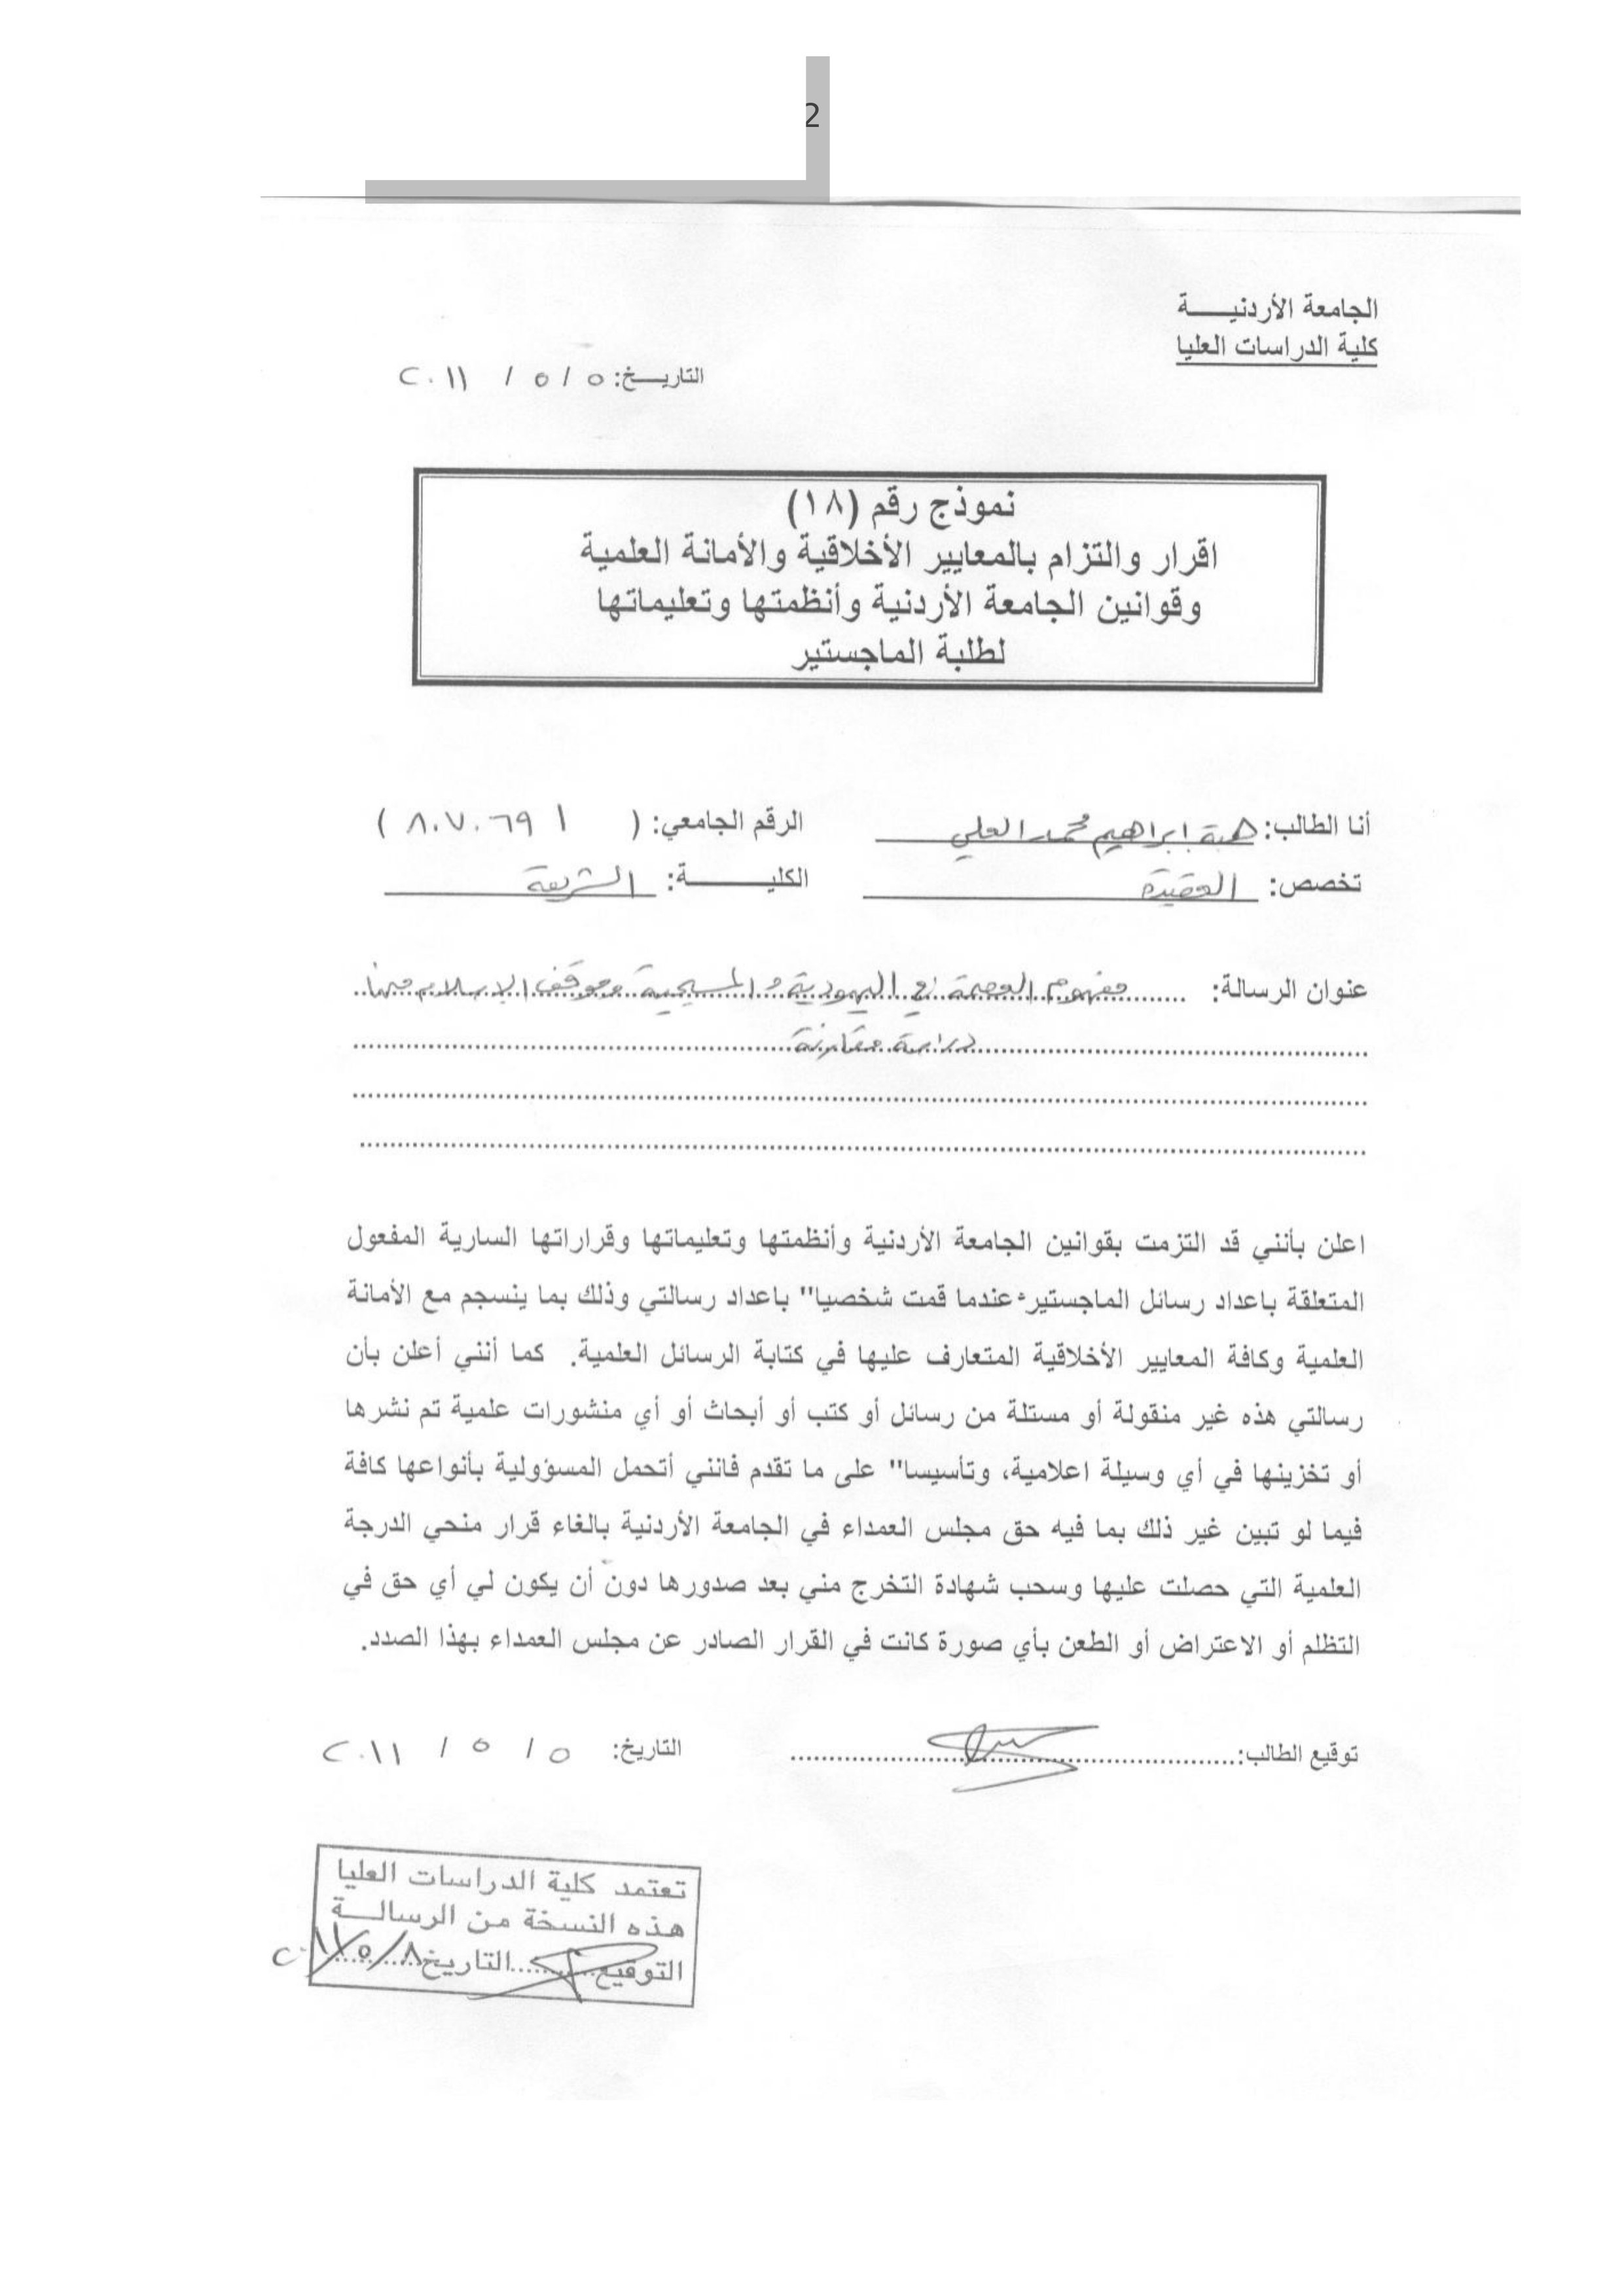 2
الجامعة الأردنيـــــة
كلية الدراسات العليا
التاريـــخ: ٥ / ٥ / ٢٠١١
نموذج رقم (١٨)
اقرار والتزام بالمعايير الأخلاقية والأمانة العلمية
وقوانين الجامعة الأردنية وأنظمتها وتعليماتها
لطلبة الماجستير
أنا الطالب: هبة ابراهيم محمد العلي الرقم الجامعي: ( ٨٠٧٠٦٩١ )
تخصص: العقيدة الكليـــــــة: الشريعة
عنوان الرسالة: مفهوم العصمة في اليهودية و المسيحية وموقف الاسلام منها
دراسة مقارنة
اعلن بأنني قد التزمت بقوانين الجامعة الأردنية وأنظمتها وتعليماتها وقراراتها السارية المفعول
المتعلقة باعداد رسائل الماجستير عندما قمت شخصيا" باعداد رسالتي وذلك بما ينسجم مع الأمانة
العلمية وكافة المعايير الأخلاقية المتعارف عليها في كتابة الرسائل العلمية. كما أنني أعلن بأن
رسالتي هذه غير منقولة أو مستلة من رسائل أو كتب أو أبحاث أو أي منشورات علمية تم نشرها
أو تخزينها في أي وسيلة اعلامية، وتأسيسا" على ما تقدم فانني أتحمل المسؤولية بأنواعها كافة
فيما لو تبين غير ذلك بما فيه حق مجلس العمداء في الجامعة الأردنية بالغاء قرار منحي الدرجة
العلمية التي حصلت عليها وسحب شهادة التخرج مني بعد صدورها دون أن يكون لي أي حق في
التظلم أو الاعتراض أو الطعن بأي صورة كانت في القرار الصادر عن مجلس العمداء بهذا الصدد.
توقيع الطالب: التاريخ: ٥ / ٥ / ٢٠١١
تعتمد كلية الدراسات العليا
هذه النسخة من الرسالـــة
التوقيع التاريخ ٨/٥/٢٠١١